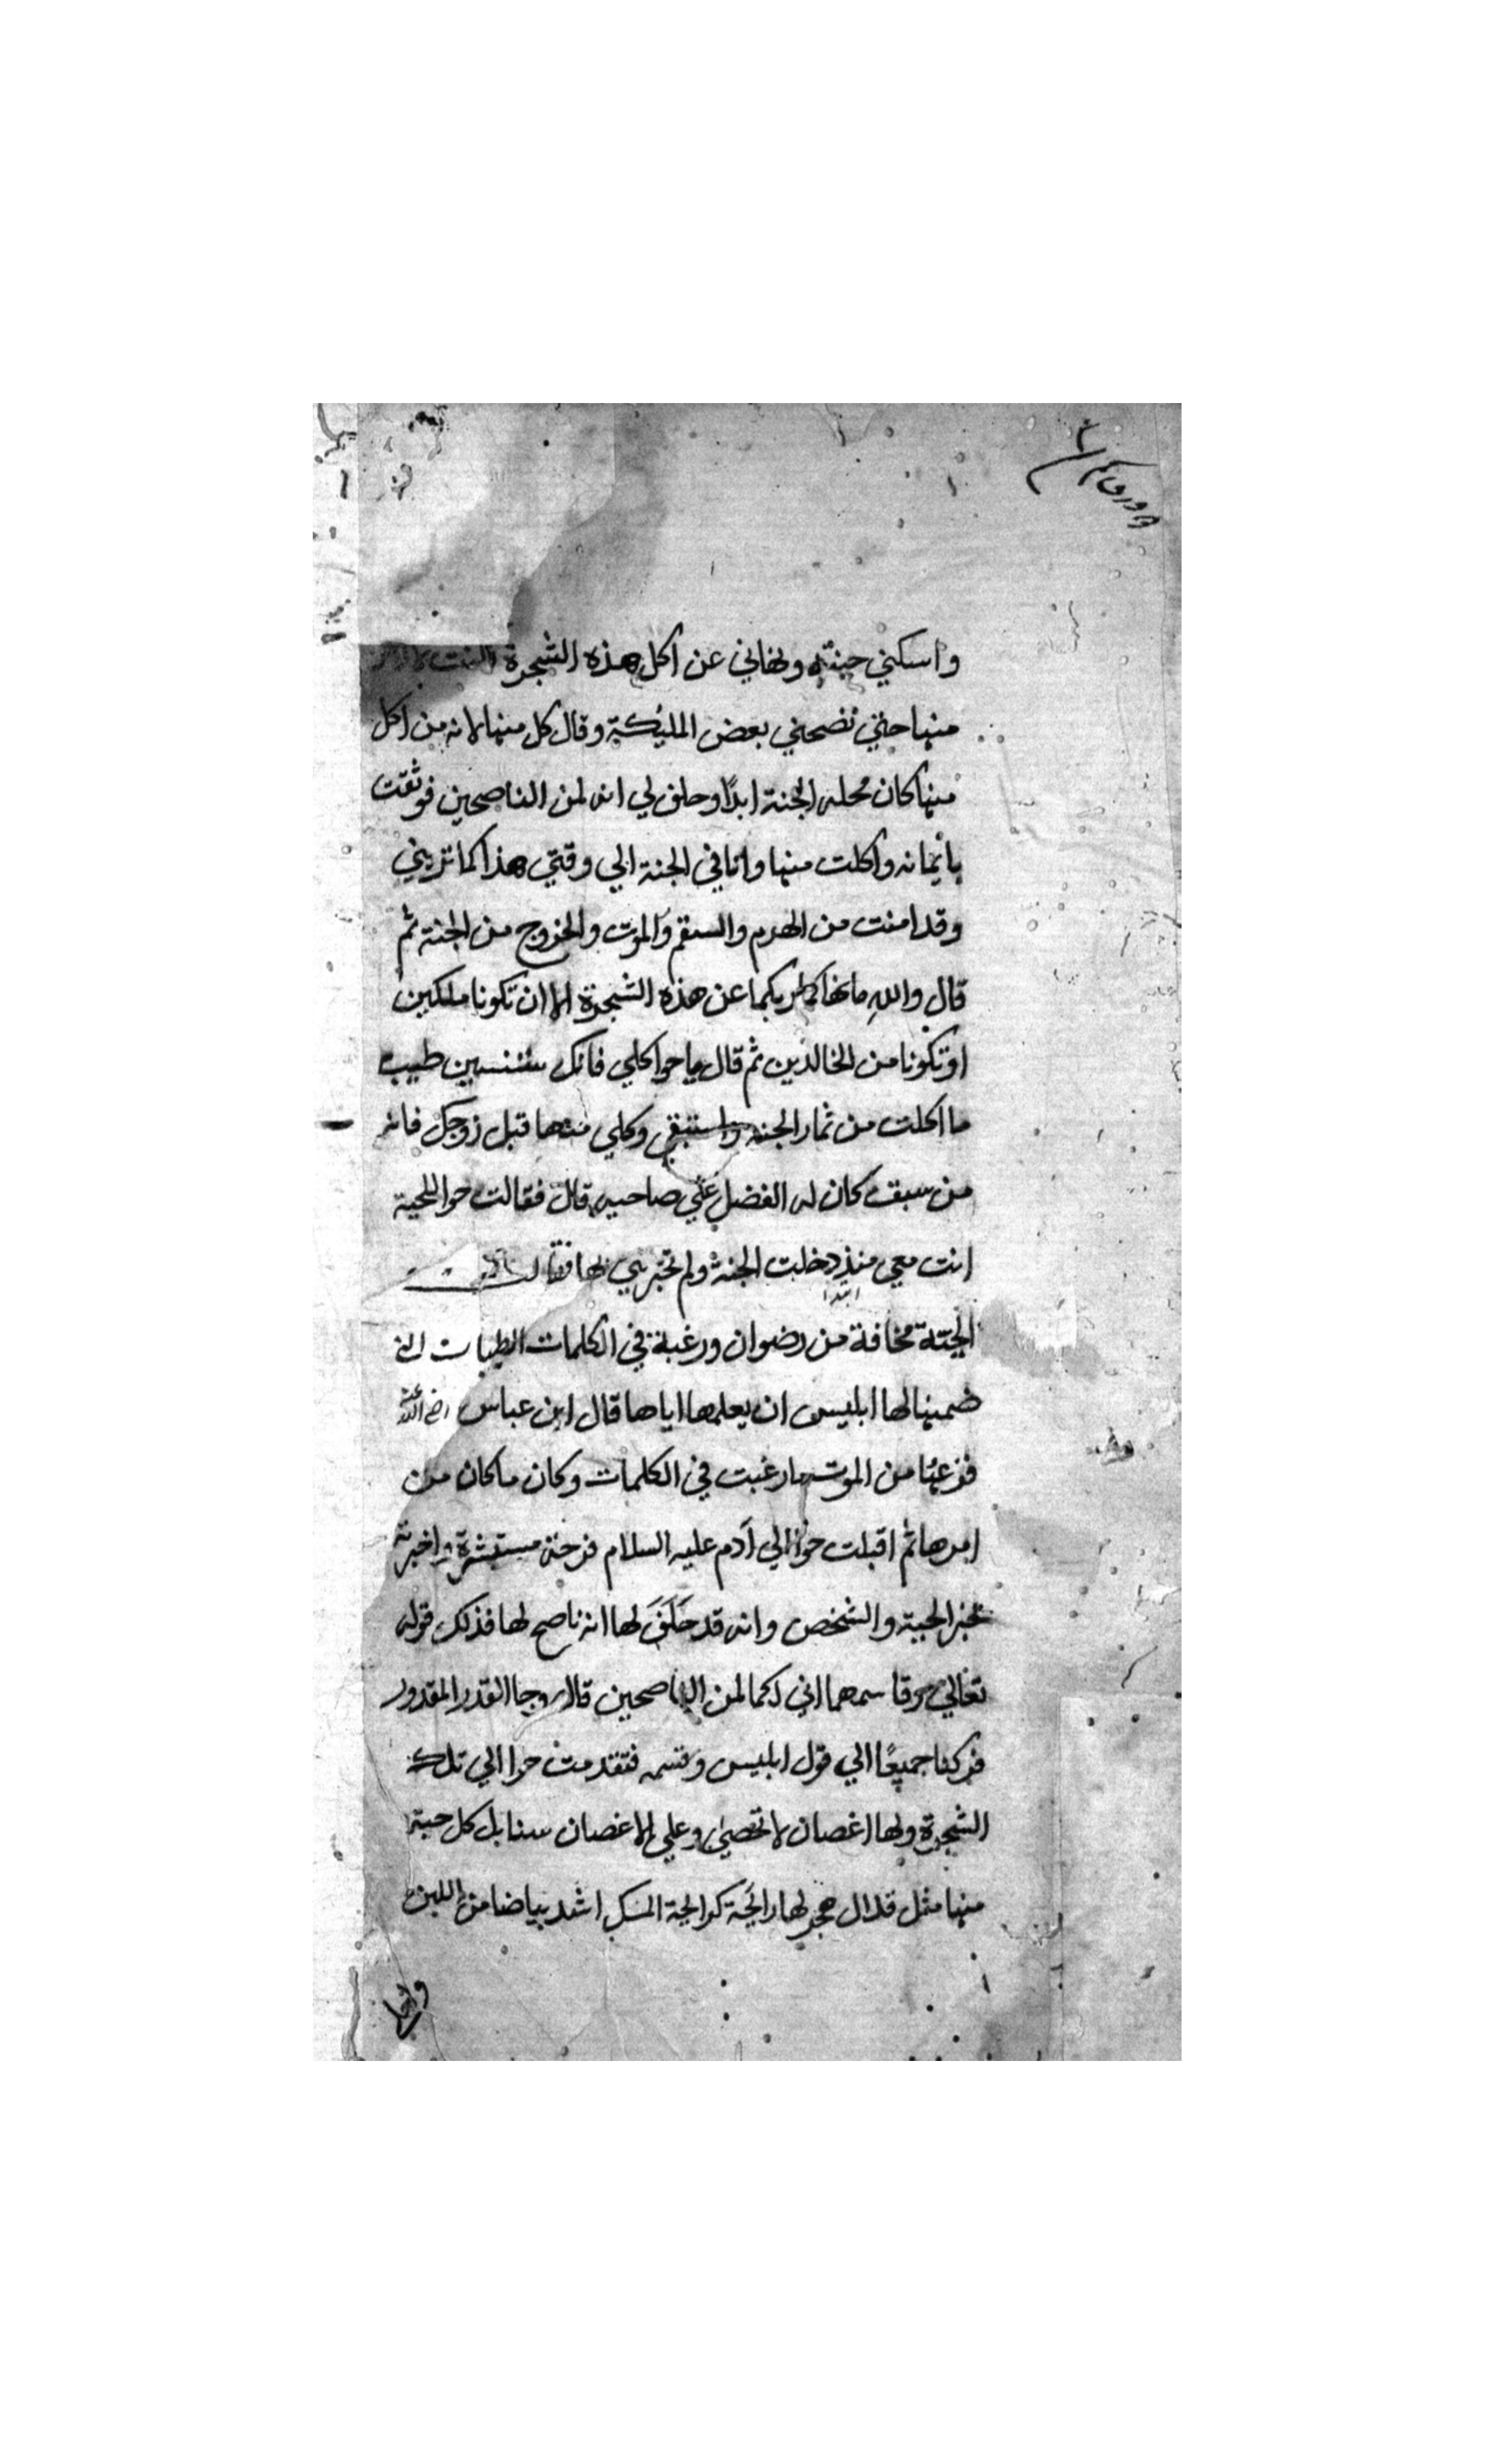 واسكني جنته ونهاني عن اكل هذه الشجرة
منها حتي نصحني بعض المليكة وقال كل منها لانه من اكل
منها كان محله الجنة ابدًا وحلف لي انه لمن الناصحين فوثقت
بأيمانه واكلت منها وانا في الجنة الي وقتي هذا كما تريني
وقد امنت من الهرم والسقم والموت والخروج من الجنة ثم
قال واللهِ ما نهاكما ربكما عن هذه الشجرة الا ان تكونا ملكين
او تكونا من الخالدين ثم قال يا حوا كلي فانك ستنسين طيب
ما اكلت من ثمار الجنة واستبقي وكلي منها قبل زوجك فانه
من سبق كان له الفضل علي صاحبه قال فقالت حوا للحية
انت معي منذ دخلت الجنة ولم تخبريني بها فقالت
ابدا
الحية مخافة من رضوان ورغبة في الكلمات الطيبات التي
ضمنها لها ابليس ان يعلمها اياها قال ابن عباس رضي الله عنه
من الموت ما رغبت في الكلمات وكان ما كان من
امرها ثم اقبلت حوا الي آدم عليه السلام فرحة مستبشرة واخبرته
بخبر الحية والشخص وانه قد حَلَفَ لها انه ناصح لها فذلك قوله
تعالي وقاسمهما اني لكما لمن الناصحين قال وجا القدر المقدور
فركنا جميعًا الي قول ابليس وقسمه فتقدمت حوا الي تلك
الشجرة ولها اغصان لا تحصي وعلي الاغصان سنابل كل حبة
منها مثل قلال هجر لها رايحة كرايحة المسك اشد بياضا من اللبن